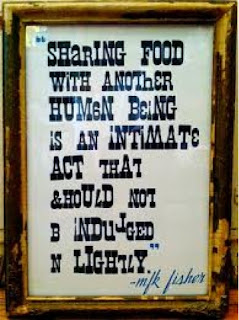 "SHaRING FOOD
WiTH ANOTHER
HUMEN BEiNG
iS AN iNTiMATE
ACT THAT
SHOULD NOT
B iNDULGED
N LIGHTLY."
-mfk fisher